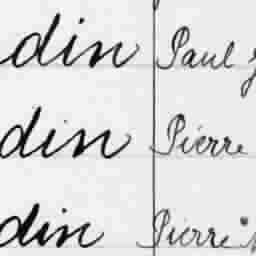 din Paul J
din Pierre
din Pierre